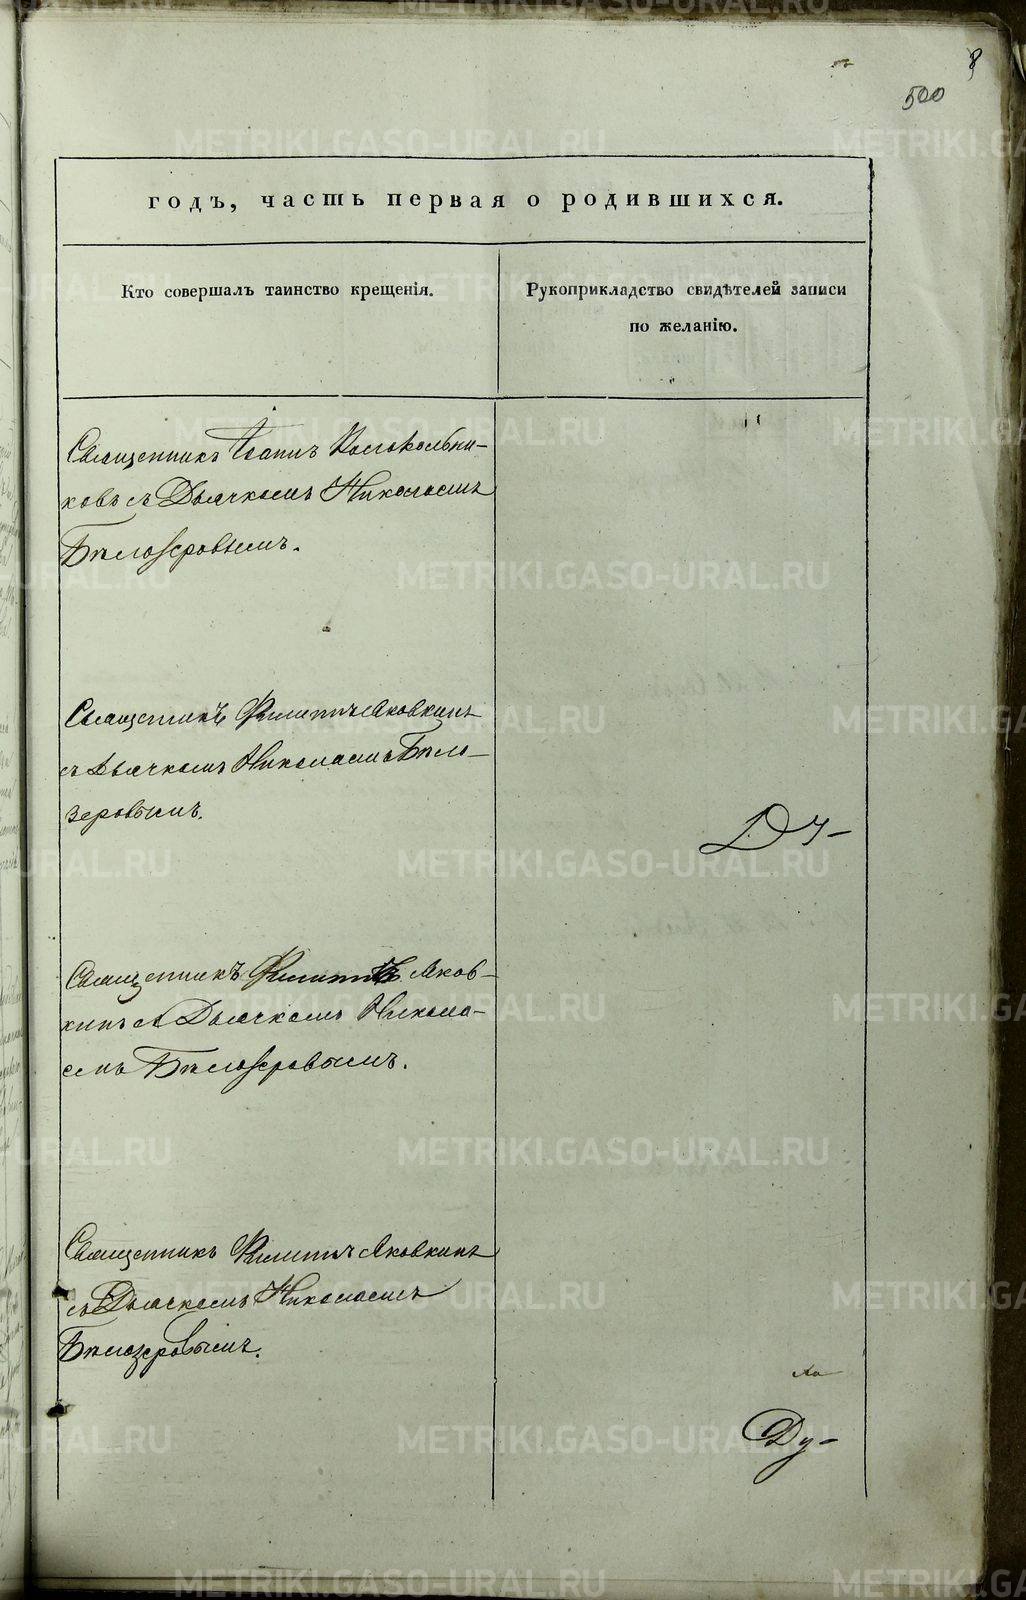 8
500
годъ, часть первая о родившихся.
Кто совершалъ таинство крещенія.
Рукоприкладство свидѣтелей записи
по желанію.
Священникъ Іоаннъ Колокольни-
ковъ съ Дьячкомъ Николаемъ
Бѣлозеровымъ.
Священникъ Филиппъ Яковкинъ
съ Дьячкомъ Николаемъ Бѣло-
зеровымъ.
Священникъ Филиппъ Яков-
кинъ съ Дьячкомъ Никола-
емъ Бѣлозеровымъ.
Священникъ Филиппъ Яковкинъ
съ Дьячкомъ Николаемъ
Бѣлозеровымъ.
METRIKI.GASO-URAL.RU